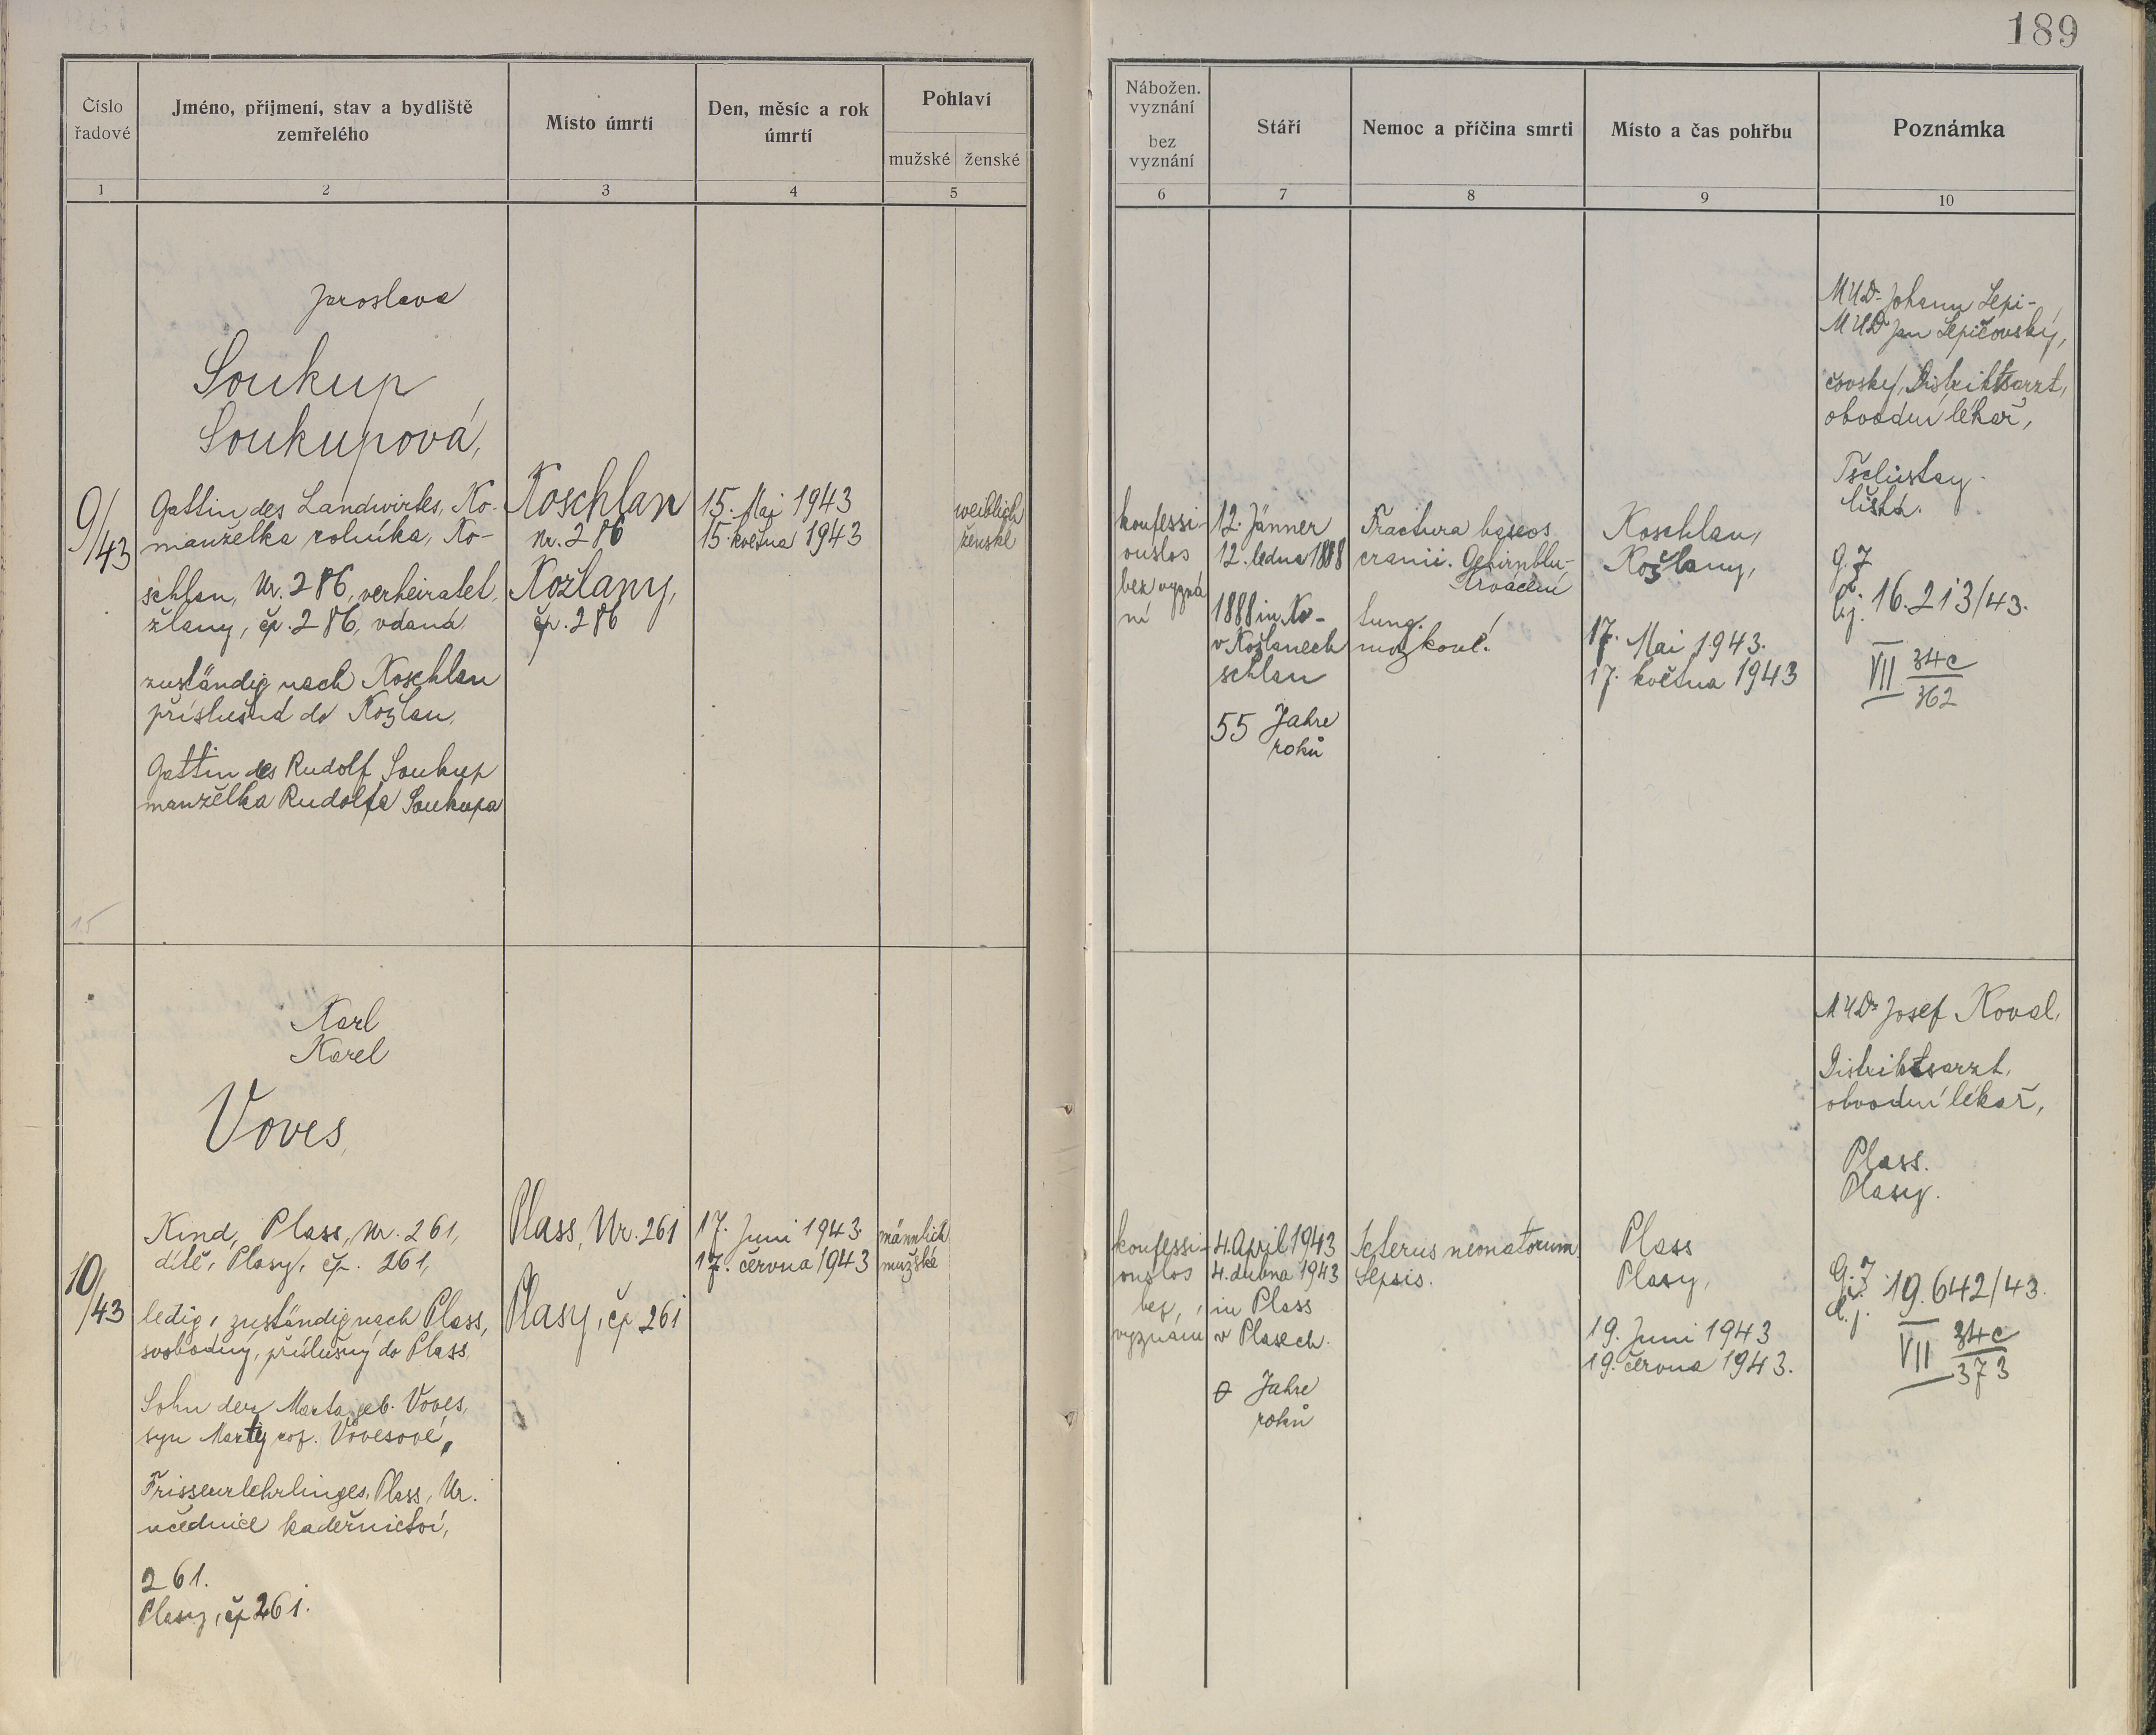 189
Číslo
řadové
Jméno, příjmení, stav a bydliště
zemřelého
Místo úmrtí
Den, měsíc a rok
úmrtí
Pohlaví
mužské
ženské
Nábožen.
vyznání
bez
vyznání
Stáří
Nemoc a příčina smrti
Místo a čas pohřbu
Poznámka
1
2
3
4
5
6
7
8
9
10
9/43
Jaroslava
Soukup
Soukupová,
Gattin des Landwirtes, Ko-
manželka rolníka, Ko-
schlan, Nr. 286, verheiratet,
žlany, čp. 286, vdaná
zuständig nach Koschlan
příslušná do Kožlan,
Gattin des Rudolf Soukup
manželka Rudolfa Soukupa
Koschlan
Nr. 286
Kožlany,
čp. 286
15. Mai 1943
15. května 1943
weiblich
ženské
konfessi-
onslos
bez vyzná
ní
12. Jänner
12. ledna 1888
1888 in Ko-
v Kožlanech
schlan
55 Jahre
roků
Fractura baseos
cranii. Gehirnblu-
krvácení
tung.
mozkové.
Koschlan,
Kožlany,
17. Mai 1943.
17. května 1943
MUDr Johann Lepi-
MUDr Jan Lepičovský,
čovský, Distriktsarzt,
obvodní lékař,
Tschistay.
Čistá.
G.Z.
čj. 16.213/43.
VII 34c
362
15
10/43
Karl
Karel
Voves,
Kind, Plass, Nr. 261,
dítě, Plasy, čp. 261,
ledig, zuständig nach Plass,
svobodný, příslušný do Plass,
Sohn der Marta geb. Voves,
syn Marty roz. Vovesové,
Frisseurlehrlinges, Plass, Nr.
učednice kadeřnictví,
261.
Plasy, čp 261.
Plass, Nr. 261
Plasy, čp 261
17. Juni 1943
17. června 1943
männlich
mužské
konfessi-
onslos
bez
vyznání
4. April 1943
4. dubna 1943
in Plass
v Plasech.
0 Jahre
roků
Icterus neonatorum
Sepsis.
Plass
Plasy,
19. Juni 1943
19. června 1943.
MUDr Josef Koval,
Distriktsarzt,
obvodní lékař,
Plass.
Plasy.
G.Z.
č.j. 19.642/43.
VII 34c
373